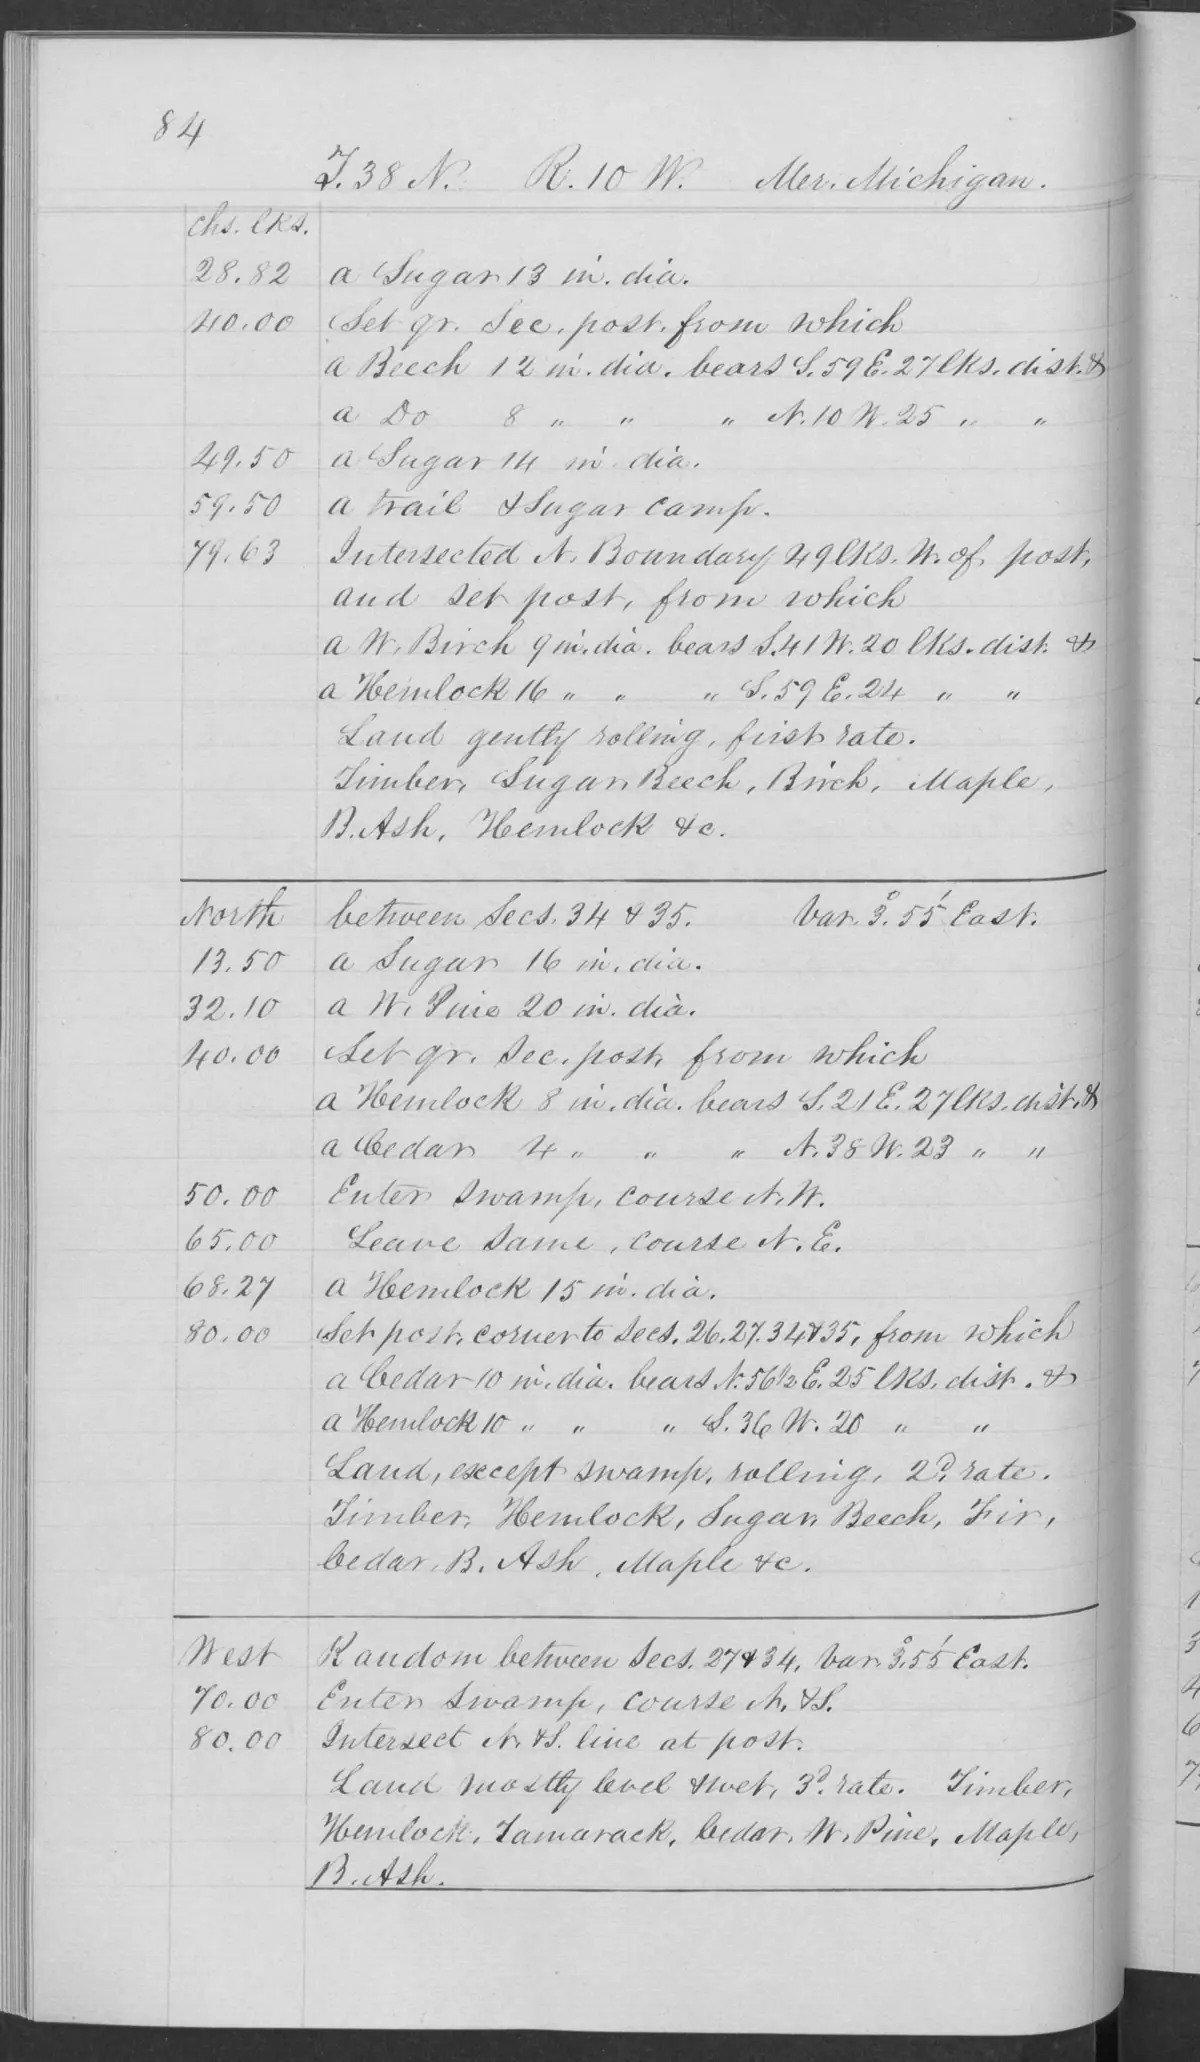 84
T. 38 N. R. 10 W. Mer. Michigan.
chs. lks.
28.82 a Sugar 13 in. dia.
40.00 Set qr. Sec. post. from which
a Beech 12 in. dia. bears S. 59 E. 27 lks. dist. &
a Do 8 " " " N. 10 W. 25 " "
49.50 a Sugar 14 in dia.
59.50 a trail & Sugar Camp.
79.63 Intersected N. Boundary 49 lks. W. of post,
and set post, from which
a W. Birch 9 in. dia. bears S. 41 W. 20 lks. dist. &
a Hemlock 16 " " " S. 59 E. 24 " "
Land gently rolling, first rate.
Timber, Sugar, Beech, Birch, Maple,
B. Ash, Hemlock &c.
North between Secs. 34 & 35. Var. 3°. 55' East.
13.50 a Sugar 16 in. dia.
32.10 a W. Pine 20 in. dia.
40.00 Set qr. Sec. post, from which
a Hemlock 8 in. dia. bears S. 21 E. 27 lks. dist. &
a Cedar 4 " " " N. 38 W. 23 " "
50.00 Enter swamp, course N. W.
65.00 Leave same, course N. E.
68.27 a Hemlock 15 in. dia.
80.00 Set post, corner to Secs. 26. 27. 34 & 35, from which
a Cedar 10 in. dia. bears N. 56½ E. 25 lks. dist. &
a Hemlock 10 " " " S. 36 W. 20 " "
Land, except swamp, rolling, 2d. rate.
Timber, Hemlock, Sugar, Beech, Fir,
Cedar, B. Ash, Maple &c.
West Random between Secs. 27 & 34, Var. 3°. 55' East.
70.00 Enter Swamp, course N. & S.
80.00 Intersect N. & S. line at post.
Land mostly level & wet, 3d. rate. Timber,
Hemlock, Tamarack, Cedar, W. Pine, Maple,
B. Ash.